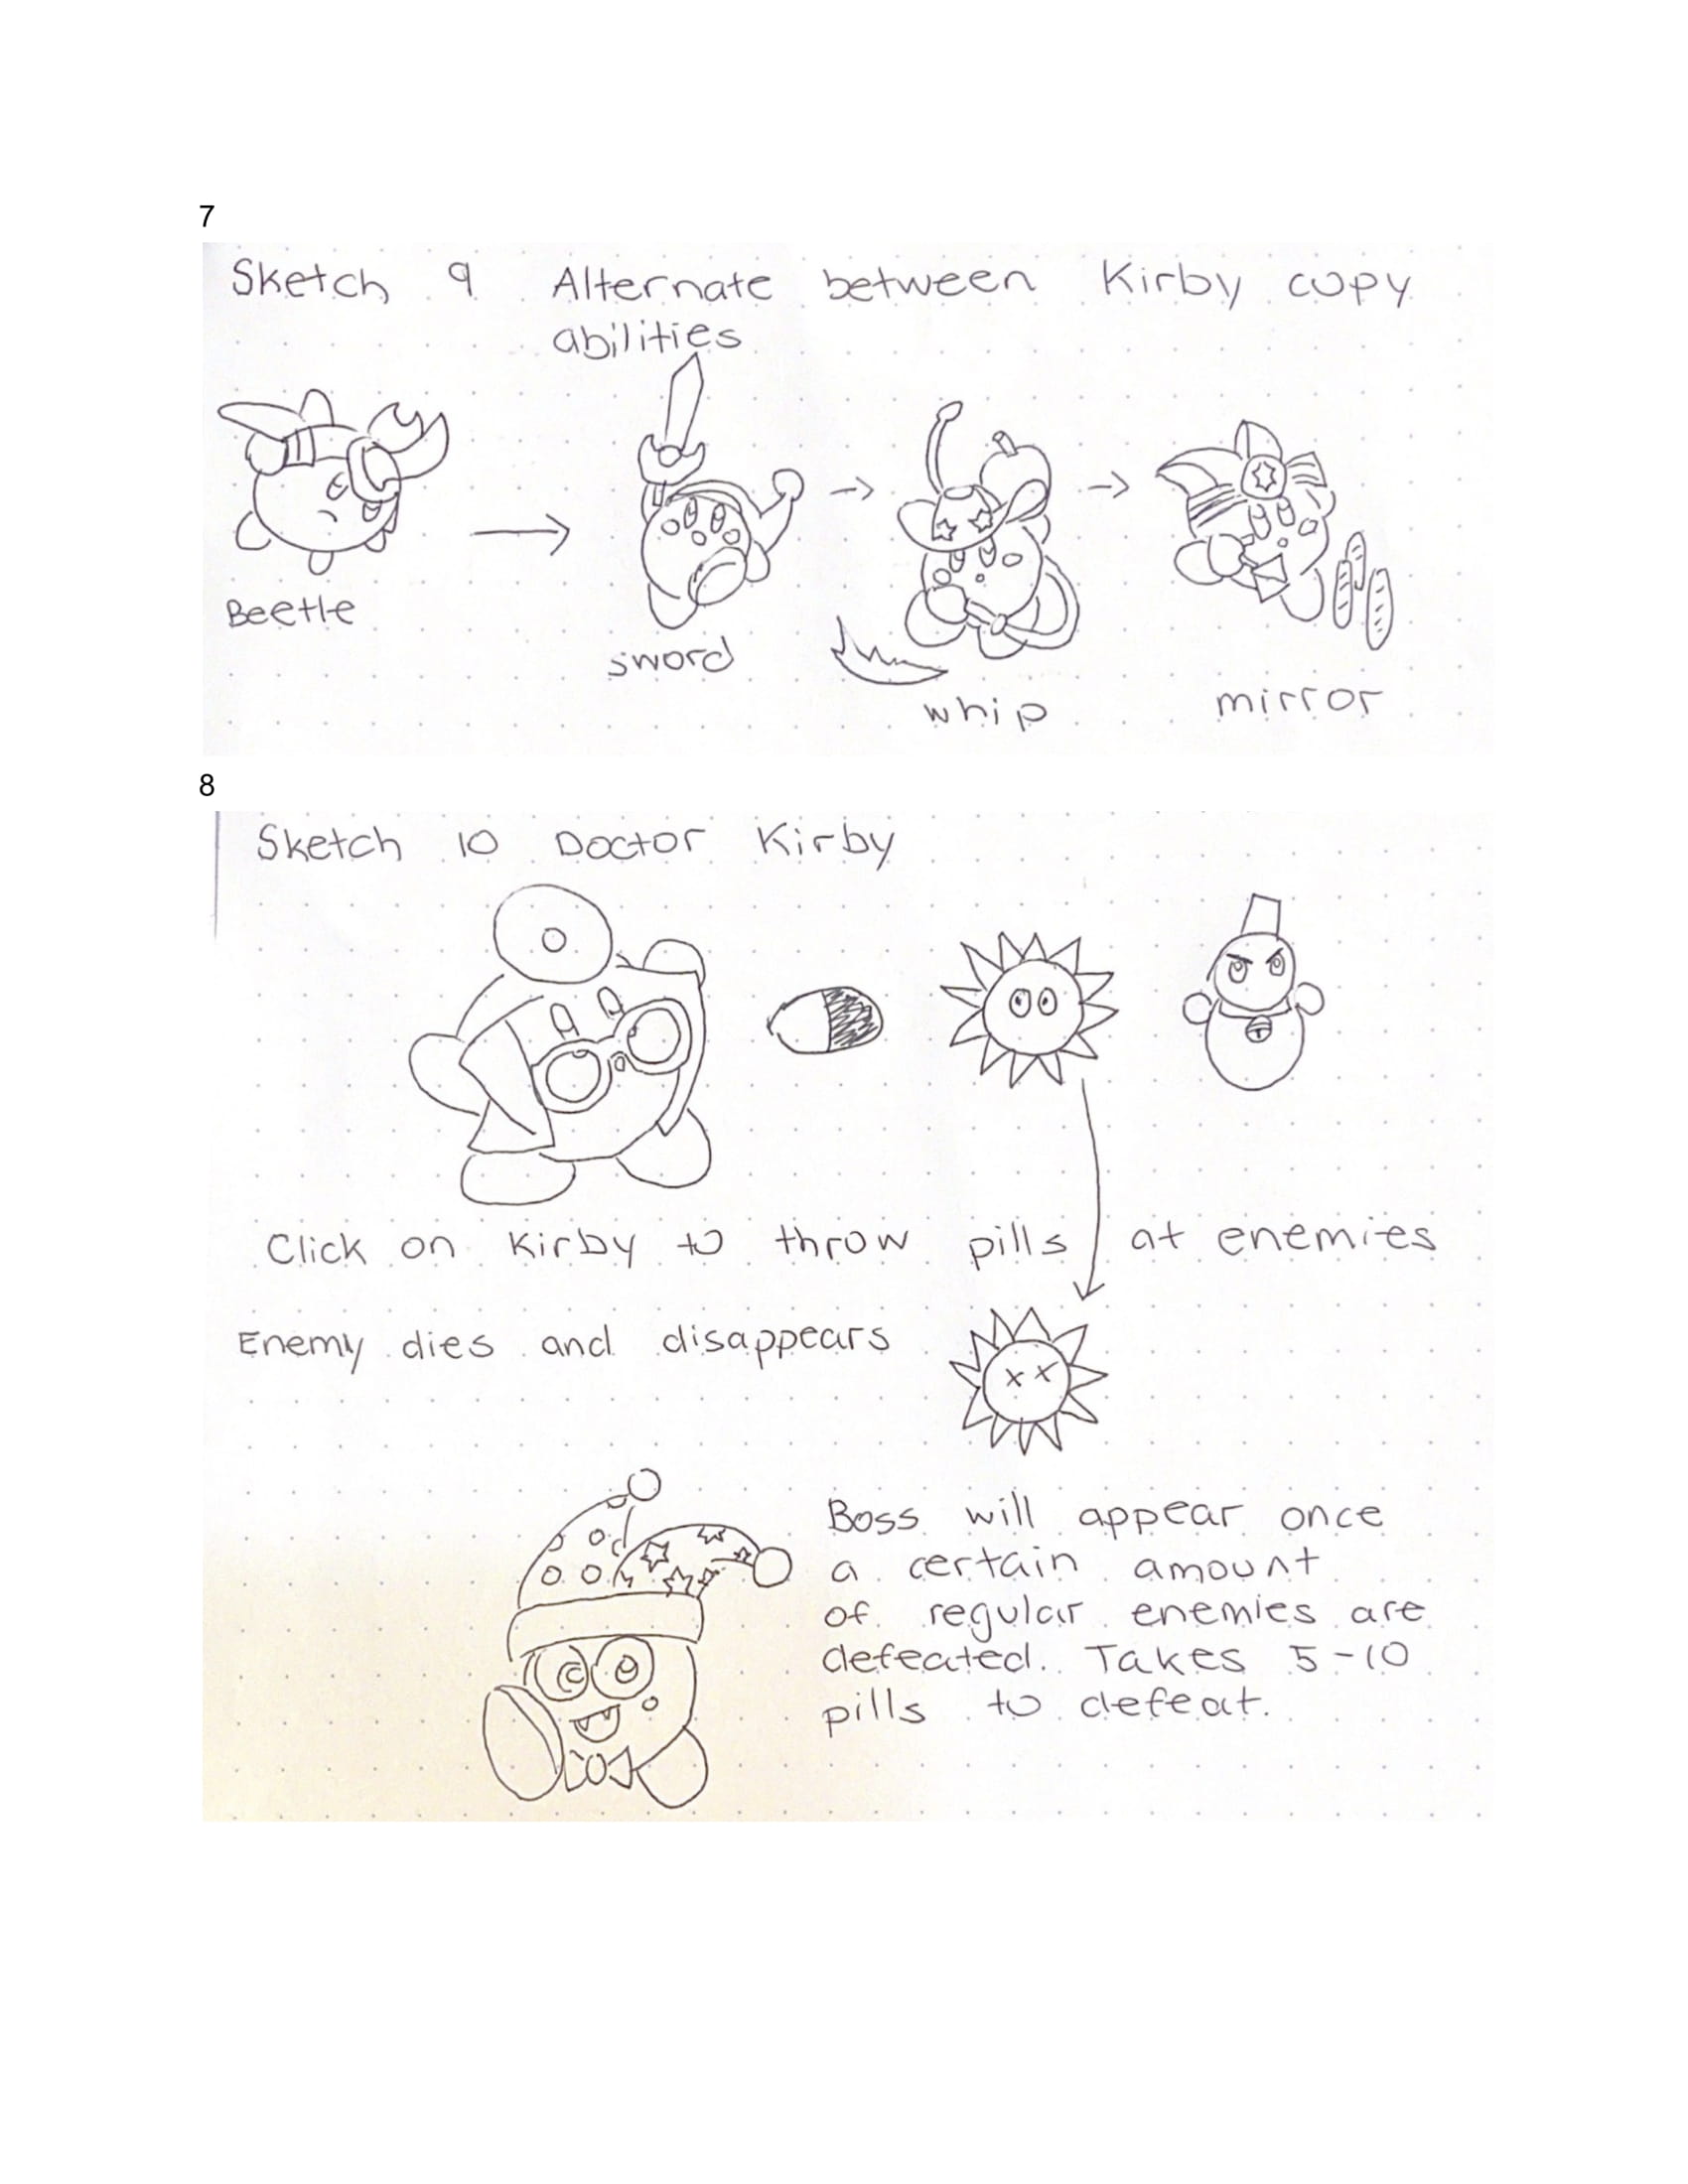 7
Sketch 9 Alternate between Kirby copy
abilities
Beetle
sword
whip
mirror
8
Sketch 10 Doctor Kirby
Click on Kirby to throw pills at enemies
Enemy dies and disappears
Boss will appear once
a certain amount
of regular enemies are
defeated. Takes 5-10
pills to defeat.